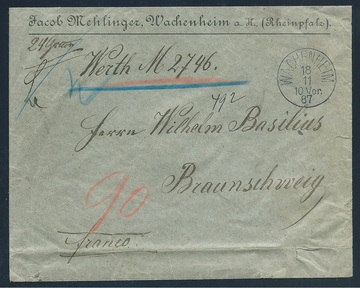 Jacob Mehlinger, Wachenheim a. H. (Rheinpfalz).
Werth M 2746.
WACHENHEIM
18
11
10 Vor.
87
792
Herrn Wilhelm Basilius
Braunschweig
90
franco.